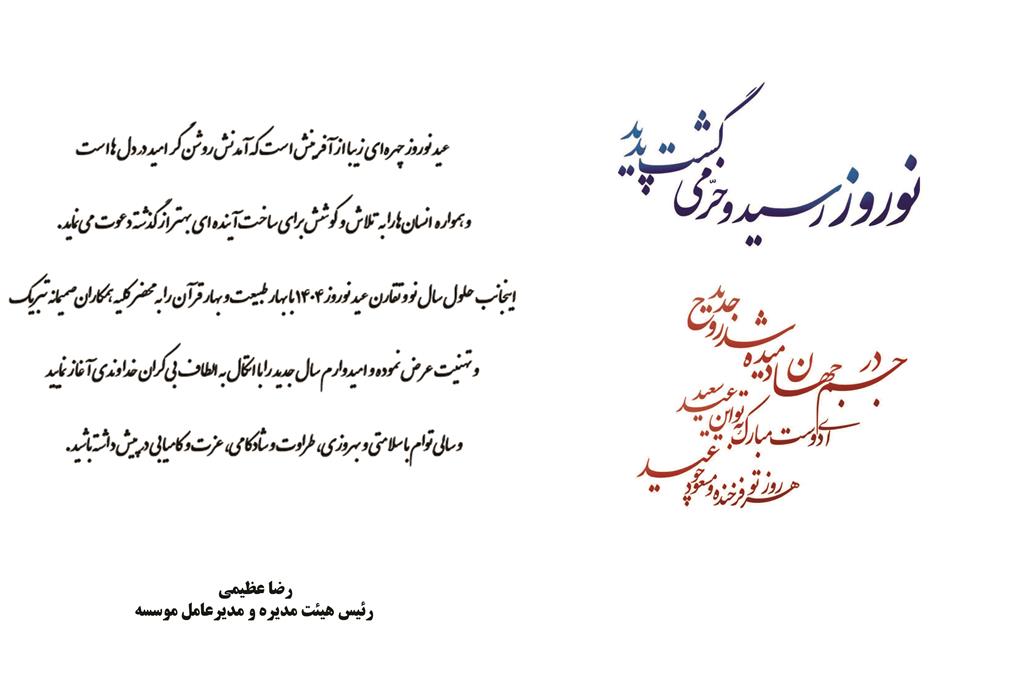 نوروز رسید و خرّمی گشت پدید
در جسم جهان دمیده شد روح جدید
ای دوست مبارک به تو این عید سعید
هر روز تو فرخنده و مسعود چو عید
عید نوروز چهره ای زیبا از آفرینش است که آمدنش روشن گر امید در دل ها است
و همواره انسان ها را به تلاش و کوشش برای ساخت آینده ای بهتر از گذشته دعوت می نماید.
اینجانب حلول سال نو و تقارن عید نوروز ۱۴۰۴ با بهار طبیعت و بهار قرآن را به محضر کلیه همکاران صمیمانه تبریک
و تهنیت عرض نموده و امیدوارم سال جدید را با اتکال به الطاف بی کران خداوندی آغاز نمایید
و سالی توام با سلامتی و بهروزی، طراوت و شادکامی، عزت و کامیابی در پیش داشته باشید.
رضا عظیمی
رئیس هیئت مدیره و مدیرعامل موسسه